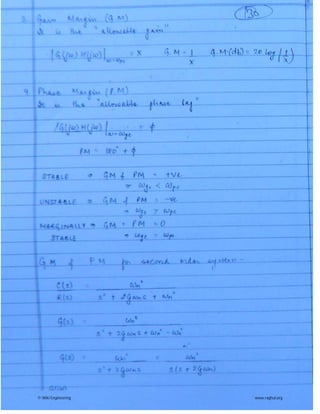 130
3. Gain Margin (GM)
It is the "allowable gain"
|G(jω)H(jω)|ω=ωpc = X G.M = 1/X G.M(db) = 20 log (1/X)
4. Phase Margin (PM)
It is the "allowable phase lag"
∠G(jω)H(jω)|ω=ωgc = ϕ
PM = 180° + ϕ
STABLE ⇒ GM & PM = +ve
⇒ ωgc < ωpc
UNSTABLE ⇒ GM & PM = -ve
⇒ ωgc > ωpc
MARGINALLY ⇒ GM = PM = 0
STABLE ⇒ ωgc = ωpc
GM & PM for second order system -
C(s)/R(s) = ωn²/(s² + 2ζωns + ωn²)
G(s) = ωn²/(s² + 2ζωns + ωn² - ωn²)
G(s) = ωn²/(s² + 2ζωns) = ωn²/(s(s + 2ζωn))
www.raghul.org